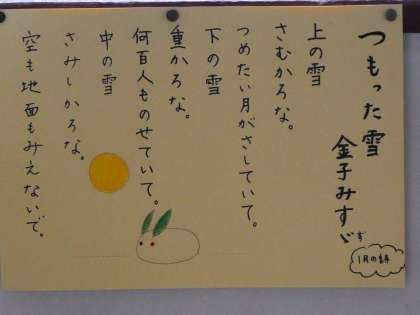 つもった雪
金子みすゞ
ず
上の雪
さむかろな。
つめたい月がさしていて。
下の雪
重かろな。
何百人ものせていて。
中の雪
さみしかろな。
空も地面もみえないで。
1月の詩